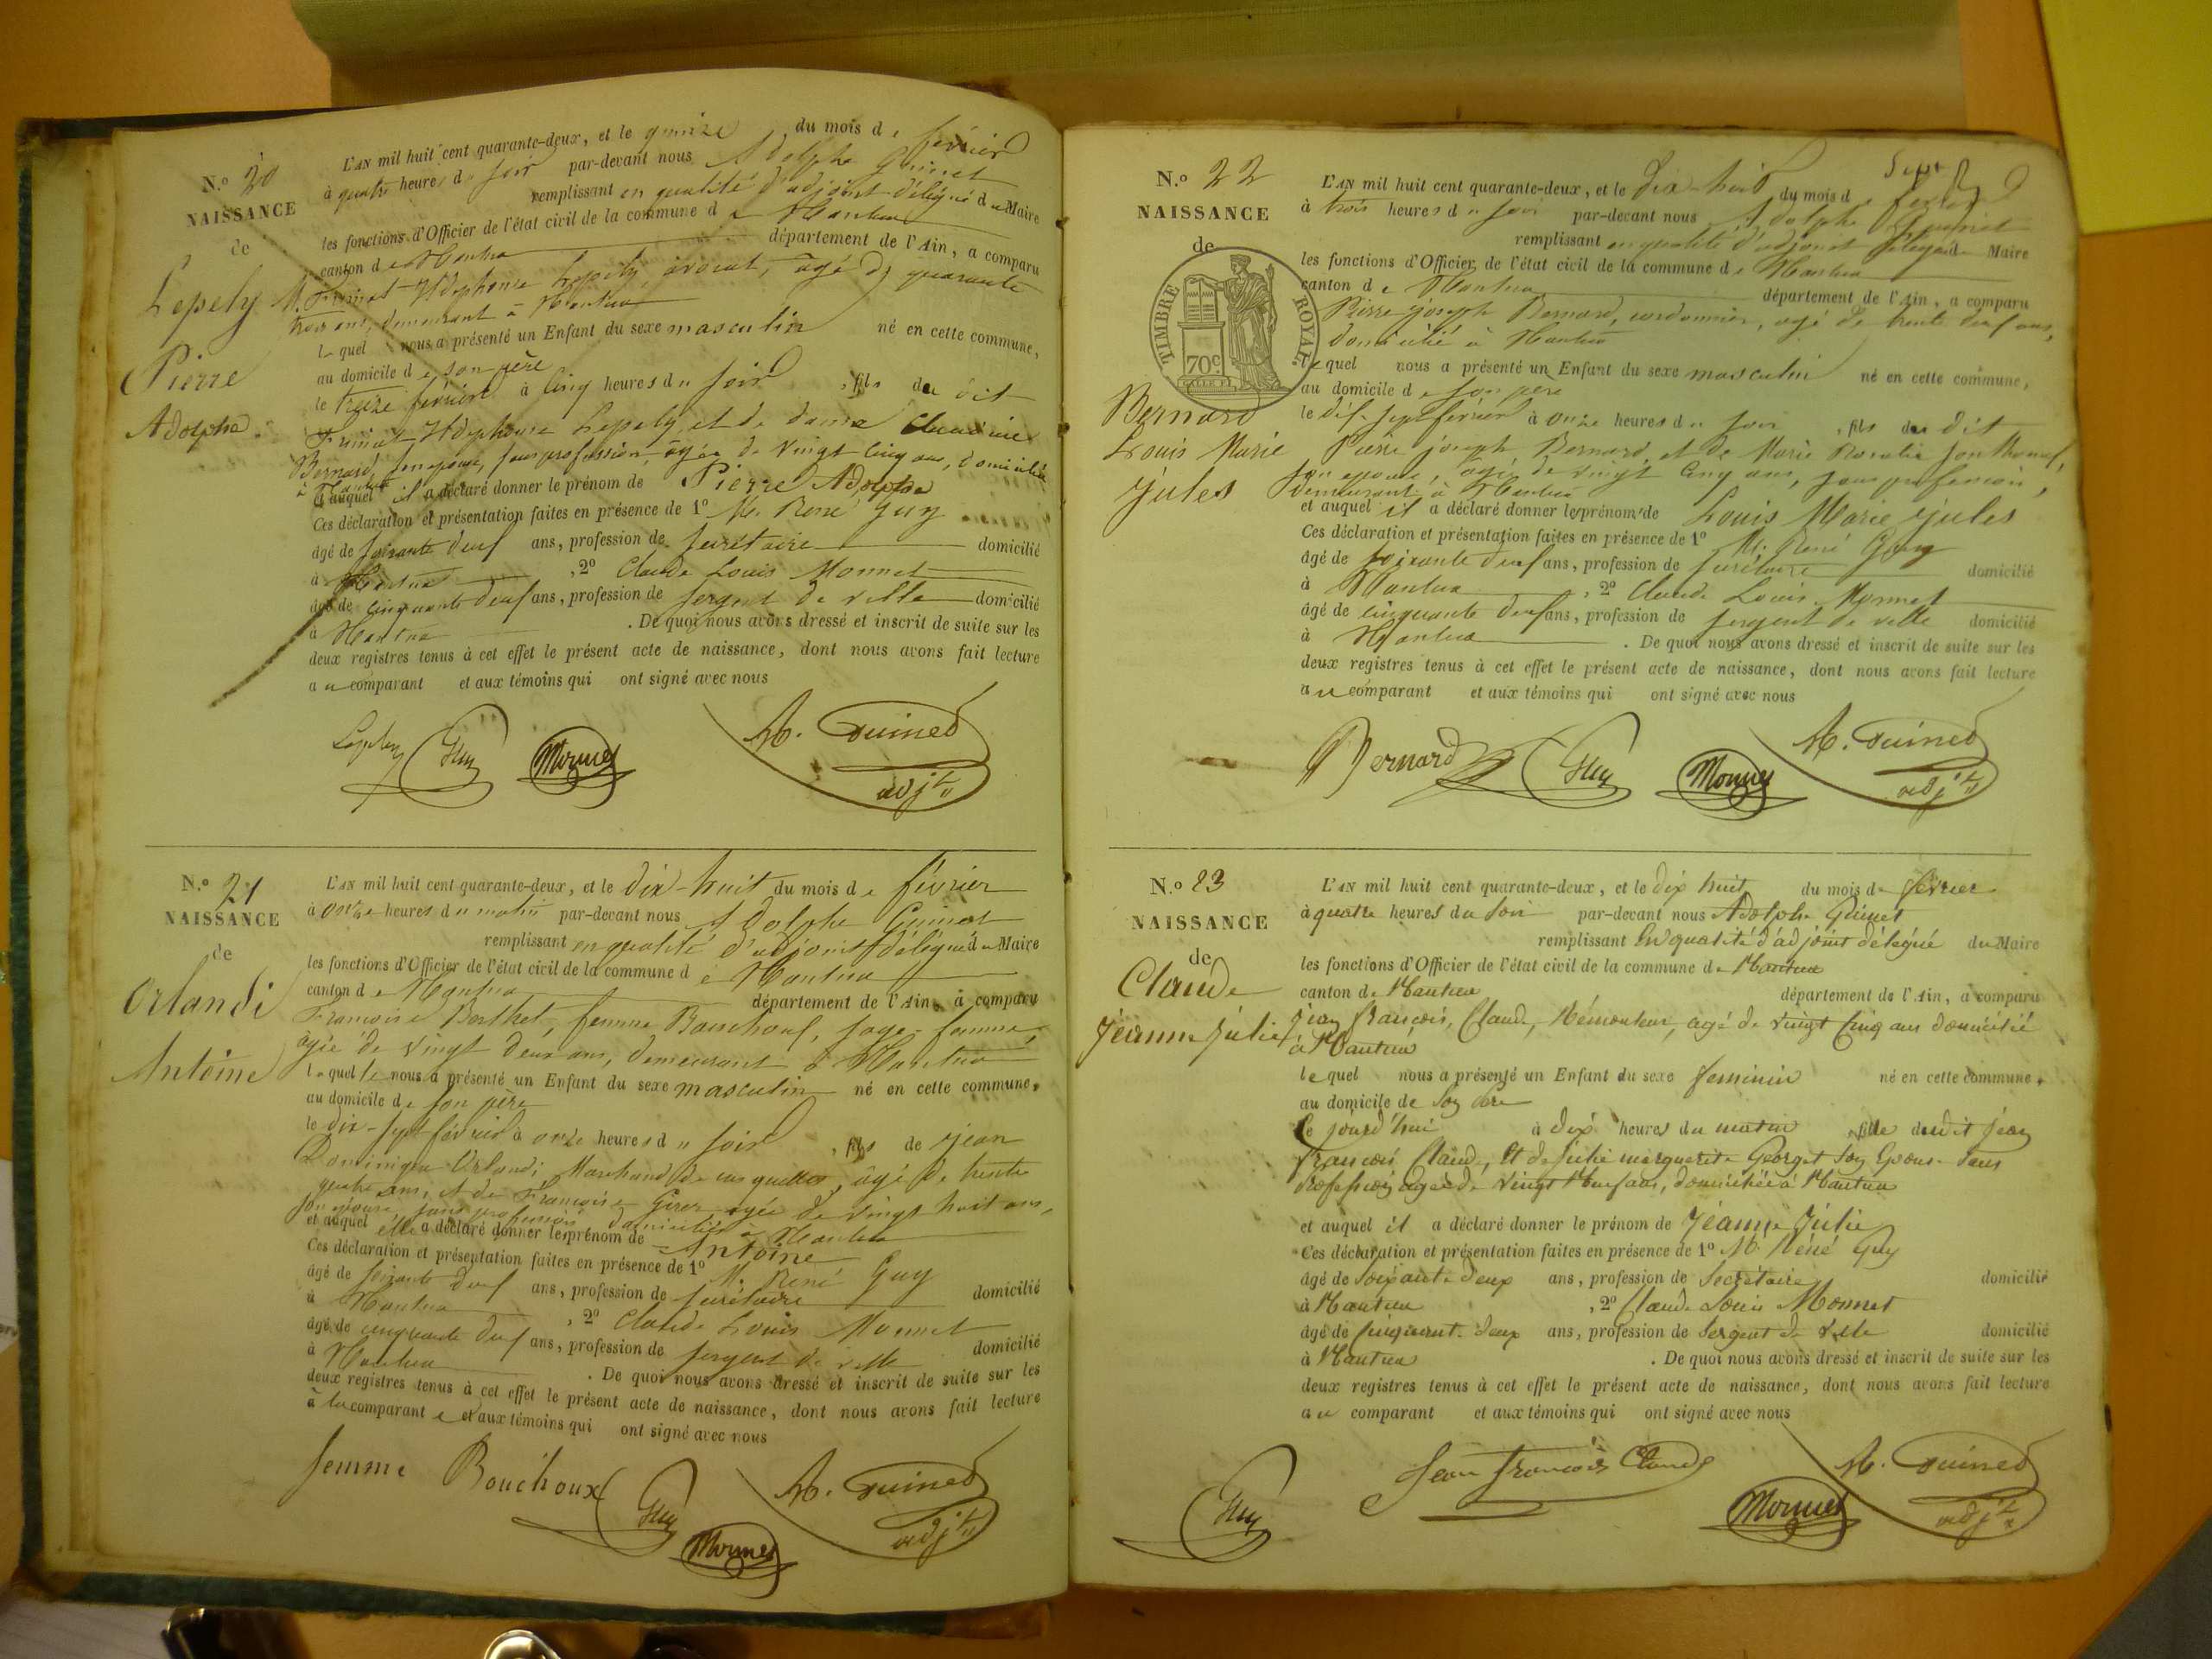 N.º 20
NAISSANCE
de
Lepely
Pierre
Adolphe
L'AN mil huit cent quarante-deux, et le quinze du mois de février
à quatre heures du soir par-devant nous Adolphe Guinet
remplissant en qualité d'adjoint délégué du Maire
les fonctions d'Officier de l'état civil de la commune de Nantua
canton de Nantua département de l'Ain, a comparu
M. Alphonse Lepely, avocat, âgé de quarante
trois ans, demeurant à Nantua
lequel nous a présenté un Enfant du sexe masculin né en cette commune,
au domicile de son père
le treize février à cinq heures du soir, fils du dit
Lepely et de dame
Bernard, son épouse, sans profession, âgée de vingt cinq ans, domiciliée
à Nantua
et auquel il a déclaré donner le prénom de Pierre Adolphe
Ces déclaration et présentation faites en présence de 1º M. René Guy
âgé de soixante deux ans, profession de secrétaire domicilié
à Nantua, 2º Claude Louis Monnet
âgé de cinquante deux ans, profession de sergent de ville domicilié
à Nantua. De quoi nous avons dressé et inscrit de suite sur les
deux registres tenus à cet effet le présent acte de naissance, dont nous avons fait lecture
au comparant et aux témoins qui ont signé avec nous
Lepely Guy Monnet A. Guinet
adjt
N.º 21
NAISSANCE
de
Orlandi
Antoine
L'AN mil huit cent quarante-deux, et le dix-huit du mois de février
à onze heures du matin par-devant nous Adolphe Guinet
remplissant en qualité d'adjoint délégué du Maire
les fonctions d'Officier de l'état civil de la commune de Nantua
canton de Nantua département de l'Ain, a comparu
Françoise Berthet, femme Bouchoux, sage-femme,
âgée de vingt deux ans, demeurant à Nantua
laquelle nous a présenté un Enfant du sexe masculin né en cette commune,
au domicile de son père
le dix-sept février à onze heures du soir, fils de Jean
Dominique Orlandi, Marchand de casquettes, âgé de trente
quatre ans, et de Françoise âgée de vingt huit ans,
son épouse, sans profession domiciliés à Nantua
et auquel elle a déclaré donner les prénom de Antoine
Ces déclaration et présentation faites en présence de 1º M. René Guy
âgé de soixante deux ans, profession de secrétaire domicilié
à Nantua, 2º Claude Louis Monnet
âgé de cinquante deux ans, profession de sergent de ville domicilié
à Nantua. De quoi nous avons dressé et inscrit de suite sur les
deux registres tenus à cet effet le présent acte de naissance, dont nous avons fait lecture
à la comparante et aux témoins qui ont signé avec nous
femme Bouchoux Guy A. Guinet
Monnet adjt
Sept
N.º 22
NAISSANCE
de
TIMBRE ROYAL
70c
Bernard
Louis Marie
Jules
L'AN mil huit cent quarante-deux, et le dix-huit du mois de février
à trois heures du soir par-devant nous Adolphe Guinet
remplissant en qualité d'adjoint délégué du Maire
les fonctions d'Officier de l'état civil de la commune de Nantua
canton de Nantua département de l'Ain, a comparu
Pierre Joseph Bernard, cordonnier, âgé de trente deux ans,
domicilié à Nantua
lequel nous a présenté un Enfant du sexe masculin né en cette commune,
au domicile de son père
le dix-sept février à onze heures du soir, fils du dit
Pierre Joseph Bernard et de Marie Rosalie
son épouse, âgée de vingt cinq ans, sans profession,
demeurant à Nantua
et auquel il a déclaré donner les prénoms de Louis Marie Jules
Ces déclaration et présentation faites en présence de 1º M. René Guy
âgé de soixante deux ans, profession de secrétaire domicilié
à Nantua, 2º Claude Louis Monnet
âgé de cinquante deux ans, profession de sergent de ville domicilié
à Nantua. De quoi nous avons dressé et inscrit de suite sur les
deux registres tenus à cet effet le présent acte de naissance, dont nous avons fait lecture
au comparant et aux témoins qui ont signé avec nous
Bernard Guy Monnet A. Guinet
adjt
N.º 23
NAISSANCE
de
Claude
Jeanne Julie
L'AN mil huit cent quarante-deux, et le dix huit du mois de février
à quatre heures du soir par-devant nous Adolphe Guinet
remplissant en qualité d'adjoint délégué du Maire
les fonctions d'Officier de l'état civil de la commune de Nantua
canton de Nantua département de l'Ain, a comparu
Jean François Claude, Rémouleur, agé de vingt cinq ans domicilié
à Nantua
lequel nous a présenté un Enfant du sexe féminin né en cette commune,
au domicile de son père
ce jourd'hui à dix heures du matin, fille dudit Jean
François Claude, et de Julie Marguerite Georget son épouse sans
profession agée de vingt neuf ans, domiciliée à Nantua
et auquel il a déclaré donner le prénom de Jeanne Julie
Ces déclaration et présentation faites en présence de 1º M. Réné Guy
âgé de soixante deux ans, profession de Secrétaire domicilié
à Nantua, 2º Claude Louis Monnet
âgé de cinquante deux ans, profession de Sergent de ville domicilié
à Nantua. De quoi nous avons dressé et inscrit de suite sur les
deux registres tenus à cet effet le présent acte de naissance, dont nous avons fait lecture
au comparant et aux témoins qui ont signé avec nous
Guy Jean François Claude Monnet A. Guinet
adjt